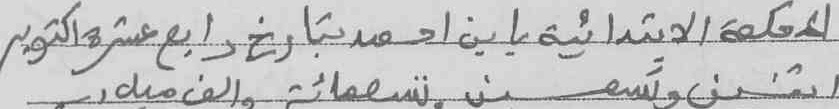 المحكمة الابتدائية بابن احمد بتاريخ رابع عشرة اكتوبر
اثنين وتسعين وتسعمائة والف ميلادية